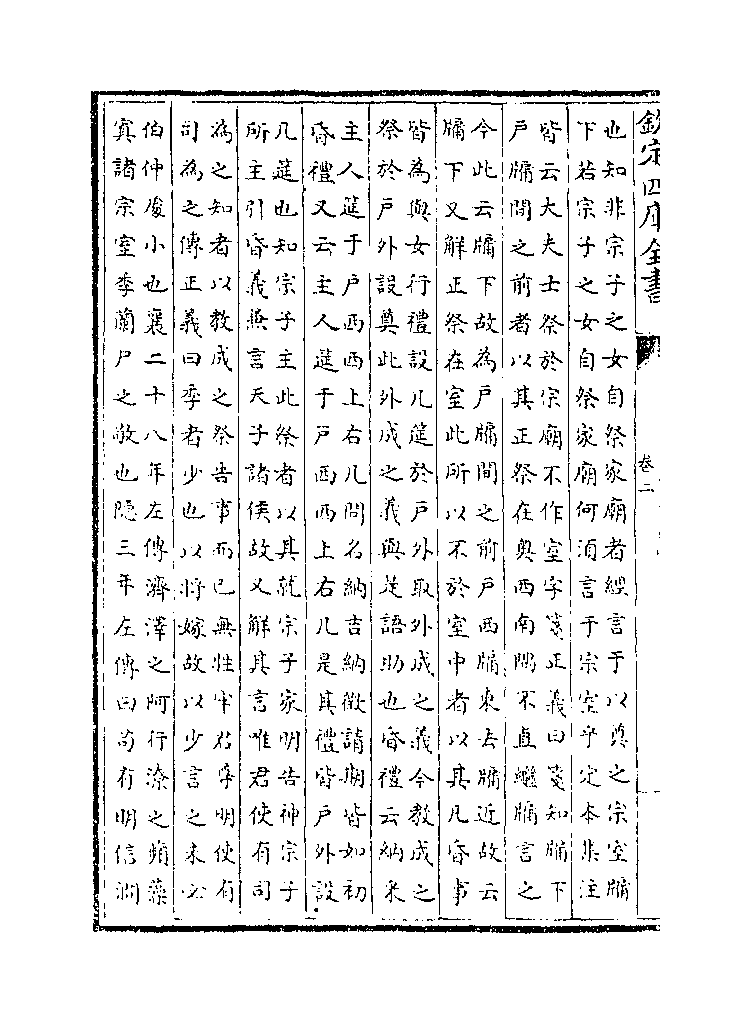 欽定四庫全書
卷二
也知非宗子之女自祭家廟者經言于以奠之宗室牖
下若宗子之女自祭家廟何須言于宗室乎定本集注
皆云大夫士祭於宗廟不作室字箋正義曰箋知牖下
戶牖間之前者以其正祭在奥西南隅不直繼牖言之
今此云牖下故為戶牖間之前戶西牖東去牖近故云
牖下又解正祭在室此所以不於室中者以其凡昏事
皆為與女行禮設几筵於戶外取外成之義今教成之
祭於戶外設奠此外成之義與是語助也昏禮云納采
主人筵于戶西西上右几問名納吉納徵請期皆如初
昏禮又云主人筵于戶西西上右几是其禮皆戶外設
几筵也知宗子主此祭者以其就宗子家明告神宗子
所主引昏義兼言天子諸侯故又解其言唯君使有司
為之知者以教成之祭告事而已無牲牢君尊明使有
司為之傳正義曰季者少也以將嫁故以少言之未必
伯仲處小也襄二十八年左傳濟澤之阿行潦之蘋藻
寘諸宗室季蘭尸之敬也隱三年左傳曰苟有明信澗